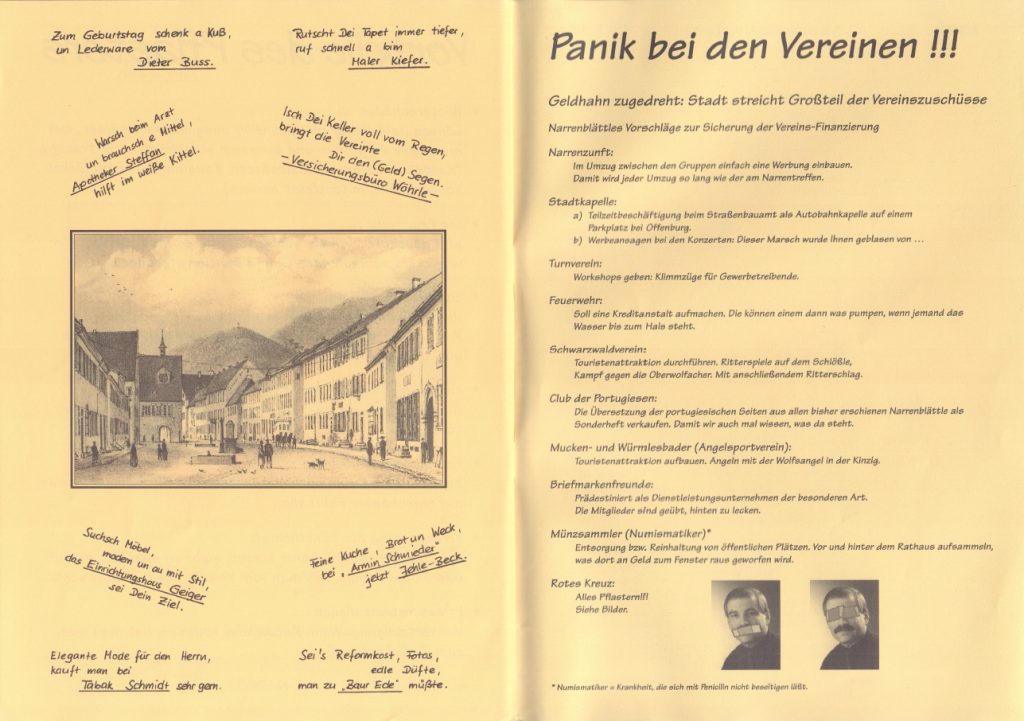 Zum Geburtstag schenk a Kuß,
un Lederware vom
Dieter Buss.
Rutscht Dei Tapet immer tiefer,
ruf schnell a bim
Maler Kiefer.
Warsch beim Arzt
un brauchsch e Mittel,
Apotheker Steffan
hilft im weiße Kittel.
Isch Dei Keller voll vom Regen,
bringt die Vereinte
Dir den (Geld) Segen.
– Versicherungsbüro Wöhrle –
Suchsch Möbel,
modern un au mit Stil,
das Einrichtungshaus Geiger
sei Dein Ziel.
Feine Kuche, Brot un Weck,
bei „Armin Schmieder"
jetzt Jehle-Beck.
Elegante Mode für den Herrn,
kauft man bei
Tabak Schmidt sehr gern.
Sei's Reformkost, Fotos,
edle Düfte,
man zu „Baur Ede" müßte.
Panik bei den Vereinen !!!
Geldhahn zugedreht: Stadt streicht Großteil der Vereinszuschüsse
Narrenblättles Vorschläge zur Sicherung der Vereins-Finanzierung
Narrenzunft:
Im Umzug zwischen den Gruppen einfach eine Werbung einbauen.
Damit wird jeder Umzug so lang wie der am Narrentreffen.
Stadtkapelle:
a) Teilzeitbeschäftigung beim Straßenbauamt als Autobahnkapelle auf einem
Parkplatz bei Offenburg.
b) Werbeansagen bei den Konzerten: Dieser Marsch wurde Ihnen geblasen von ...
Turnverein:
Workshops geben: Klimmzüge für Gewerbetreibende.
Feuerwehr:
Soll eine Kreditanstalt aufmachen. Die können einem dann was pumpen, wenn jemand das
Wasser bis zum Hals steht.
Schwarzwaldverein:
Touristenattraktion durchführen. Ritterspiele auf dem Schlößle,
Kampf gegen die Oberwolfacher. Mit anschließendem Ritterschlag.
Club der Portugiesen:
Die Übersetzung der portugiesischen Seiten aus allen bisher erschienen Narrenblättle als
Sonderheft verkaufen. Damit wir auch mal wissen, was da steht.
Mucken- und Würmlesbader (Angelsportverein):
Touristenattraktion aufbauen. Angeln mit der Wolfsangel in der Kinzig.
Briefmarkenfreunde:
Prädestiniert als Dienstleistungsunternehmen der besonderen Art.
Die Mitglieder sind geübt, hinten zu lecken.
Münzsammler (Numismatiker)*
Entsorgung bzw. Reinhaltung von öffentlichen Plätzen. Vor und hinter dem Rathaus aufsammeln,
was dort an Geld zum Fenster raus geworfen wird.
Rotes Kreuz:
Alles Pflastern!!!
Siehe Bilder.
* Numismatiker = Krankheit, die sich mit Penicilin nicht beseitigen läßt.